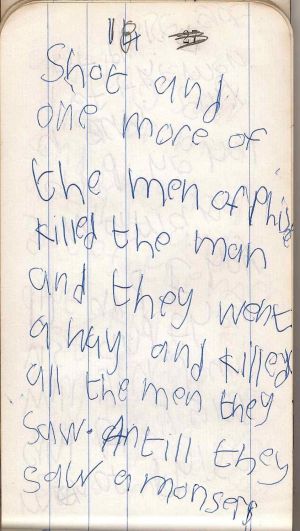 Shot and
one more of
the men of Phise
killed the man
and they went
a way and killed
all the men they
saw. Antill they
saw a monsery